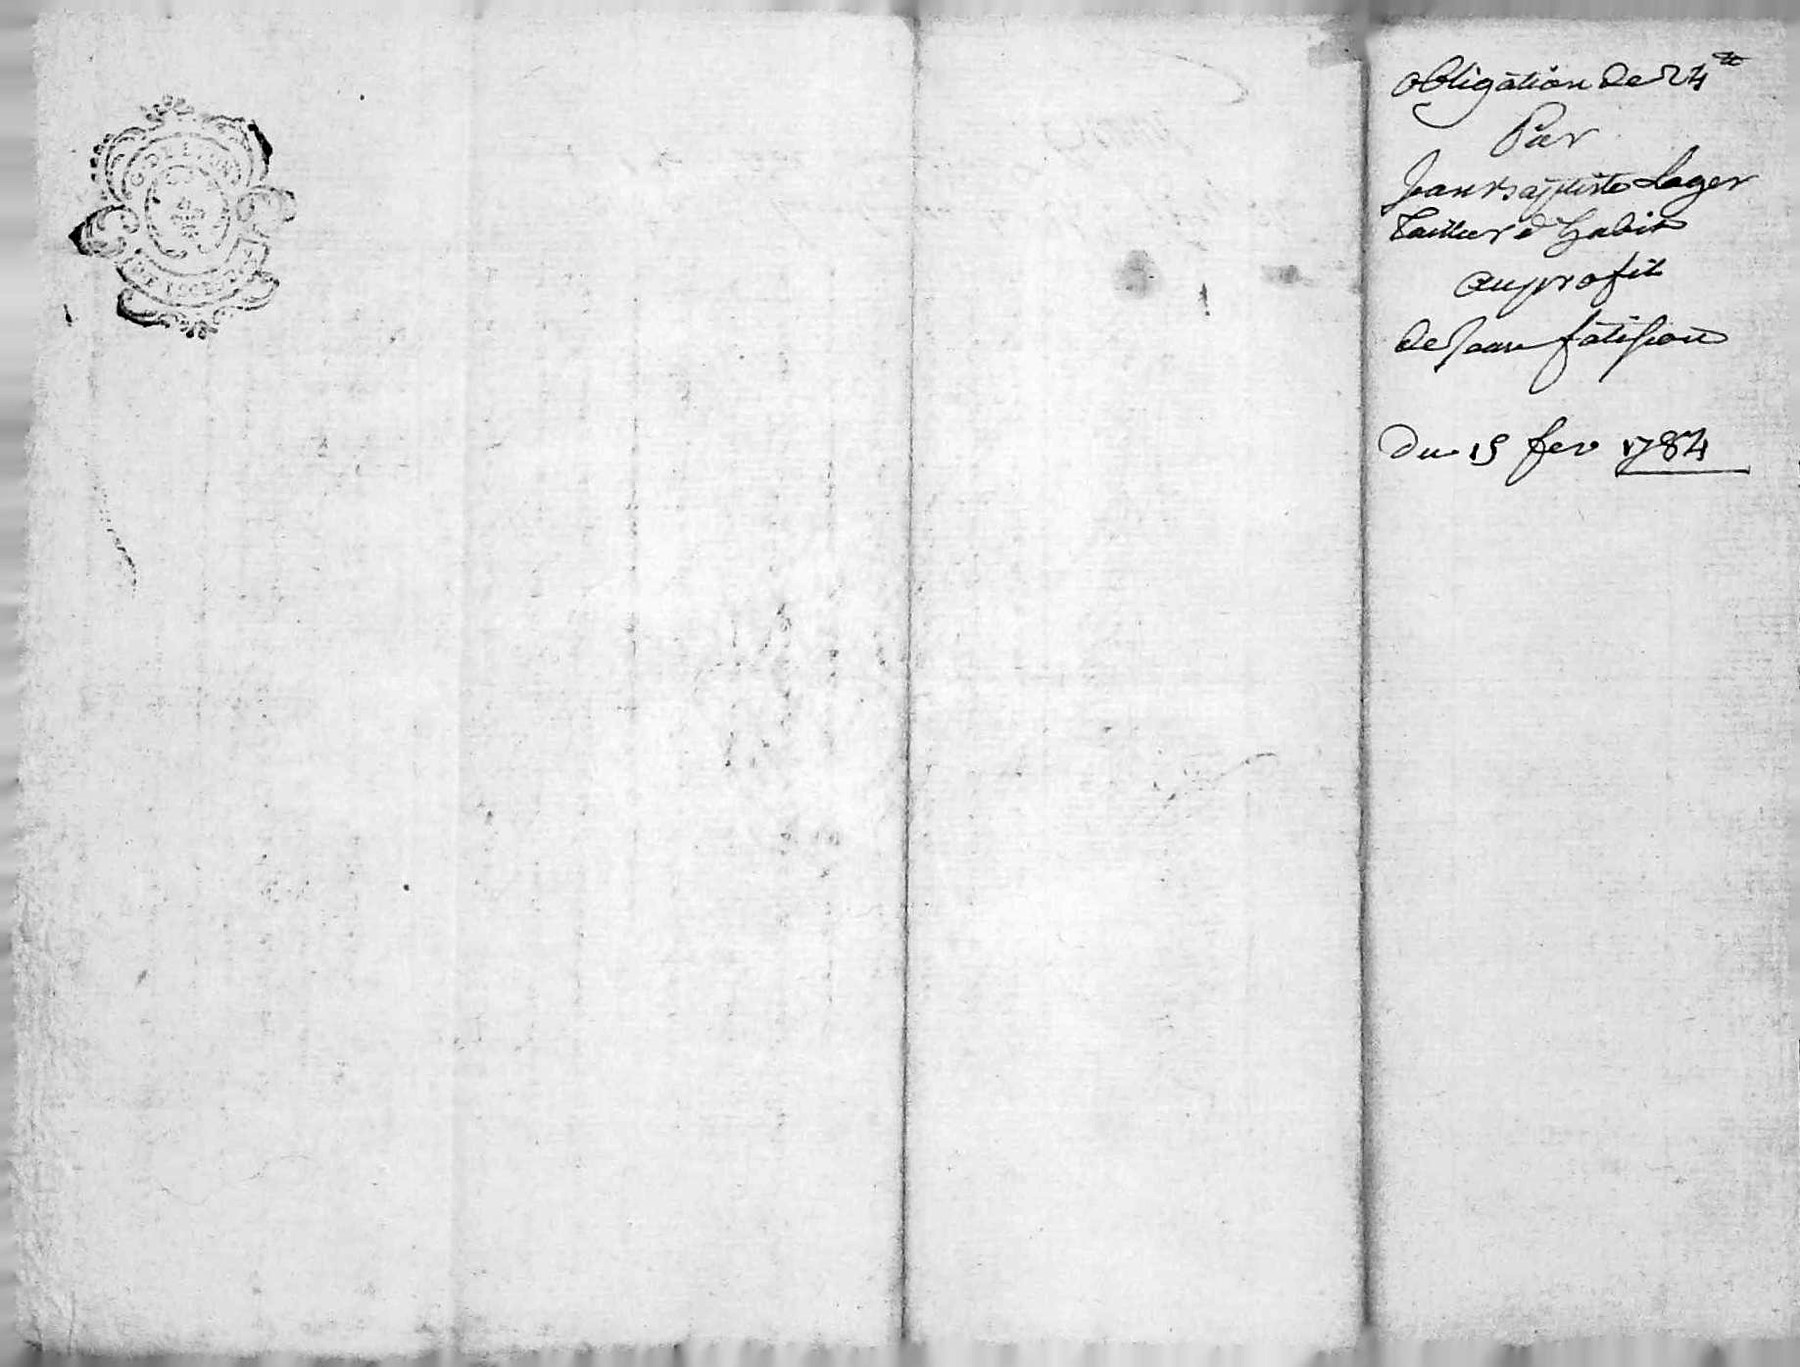 obligation de 24tt
Par
Jean Baptiste Lager
Tailleur d'habit
au profit
de Jean fatisson
Du 15 fev 1784